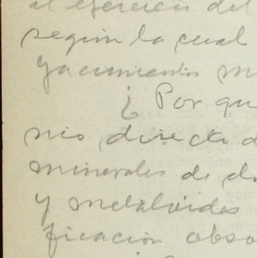 al ejercicio del
según la cual
yacimientos m
¿Por qu
nio directo d
minerales de d
y metaloides
ficación abso